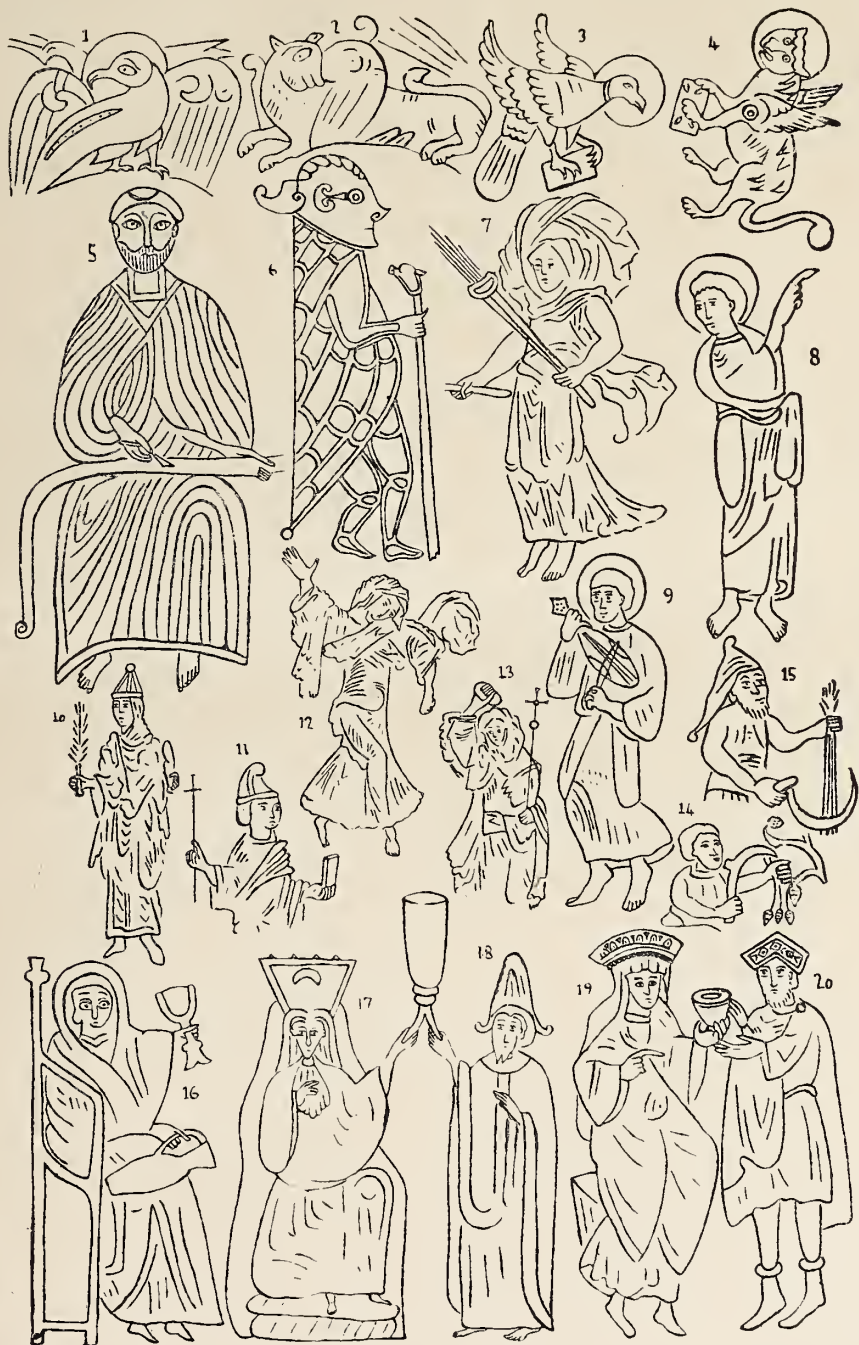 1
2
3
4
5
6
7
8
9
10
11
12
13
14
15
16
17
18
19
20